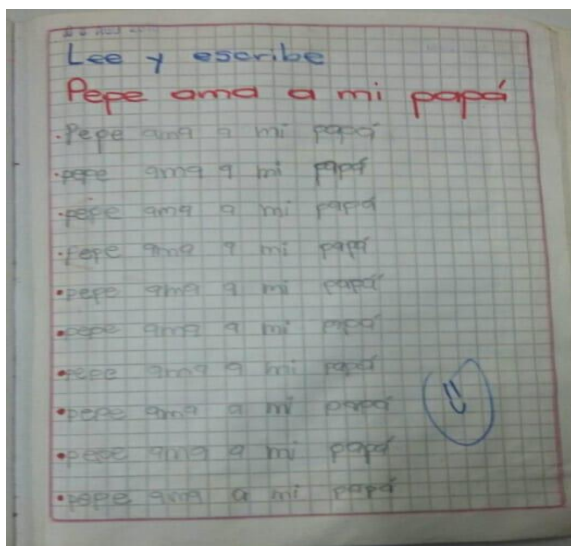 Lee y escribe
Pepe ama a mi papá
·Pepe ama a mi papá
·pepe ama a mi papá
·pepe ama a mi papá
·Pepe ama a mi papá
·pepe ama a mi papá
·pepe ama a mi papá
·pepe ama a mi papá
·pepe ama a mi papá
·pepe ama a mi papá
·pepe ama a mi papá